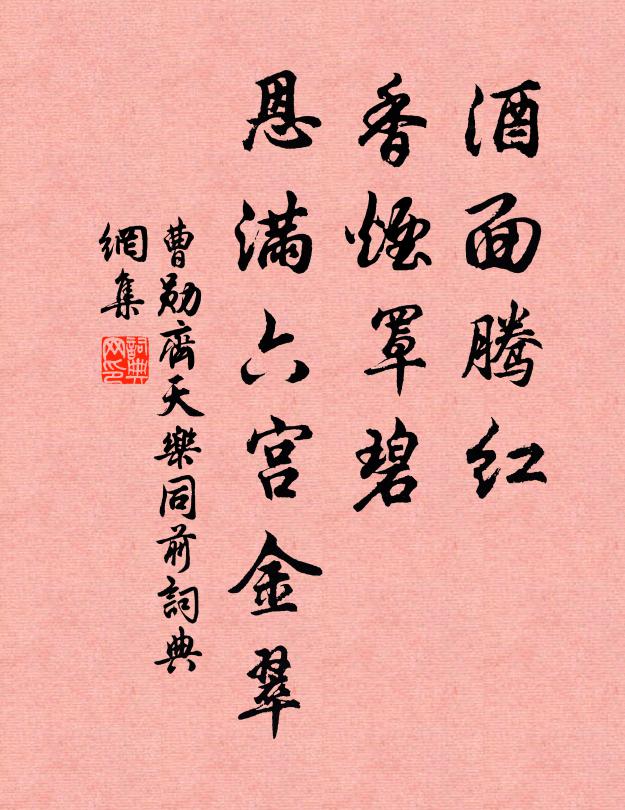 酒面騰红
香煙罩碧
恩滿六宫金翠
曹勛齊天樂同前詞典
網集
詞典
网印